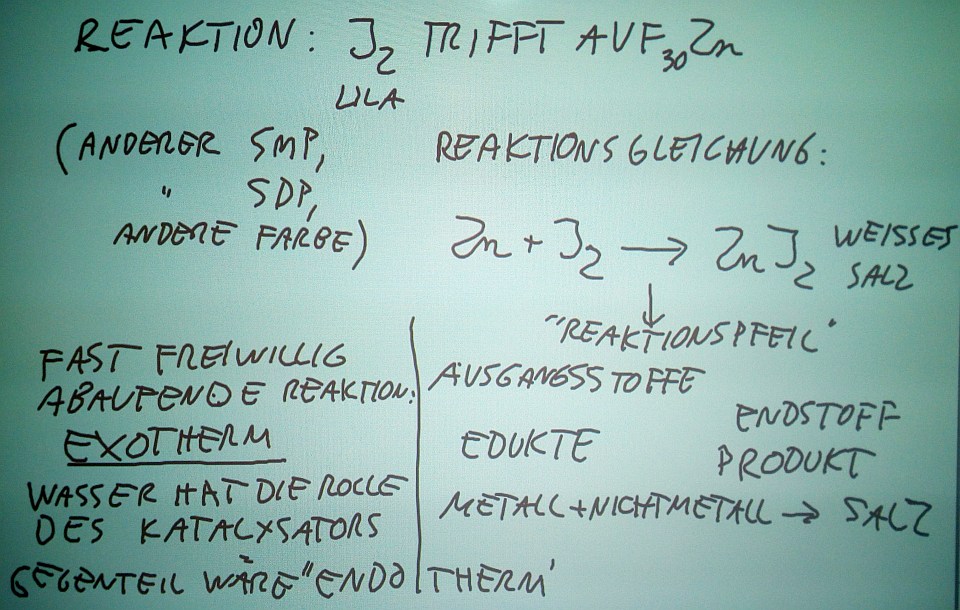 REAKTION: J₂ TRIFFT AUF ₃₀Zn
LILA
(ANDERER SMP,
" SDP,
ANDERE FARBE)
REAKTIONSGLEICHUNG:
Zn + J₂ → ZnJ₂ WEISSES
SALZ
↓
"REAKTIONSPFEIL"
FAST FREIWILLIG
ABAUFENDE REAKTION:
EXOTHERM
WASSER HAT DIE ROLLE
DES KATALYSATORS
AUSGANGSSTOFFE
ENDSTOFF
EDUKTE
PRODUKT
METALL+NICHTMETALL → SALZ
GEGENTEIL WÄRE "ENDOTHERM"